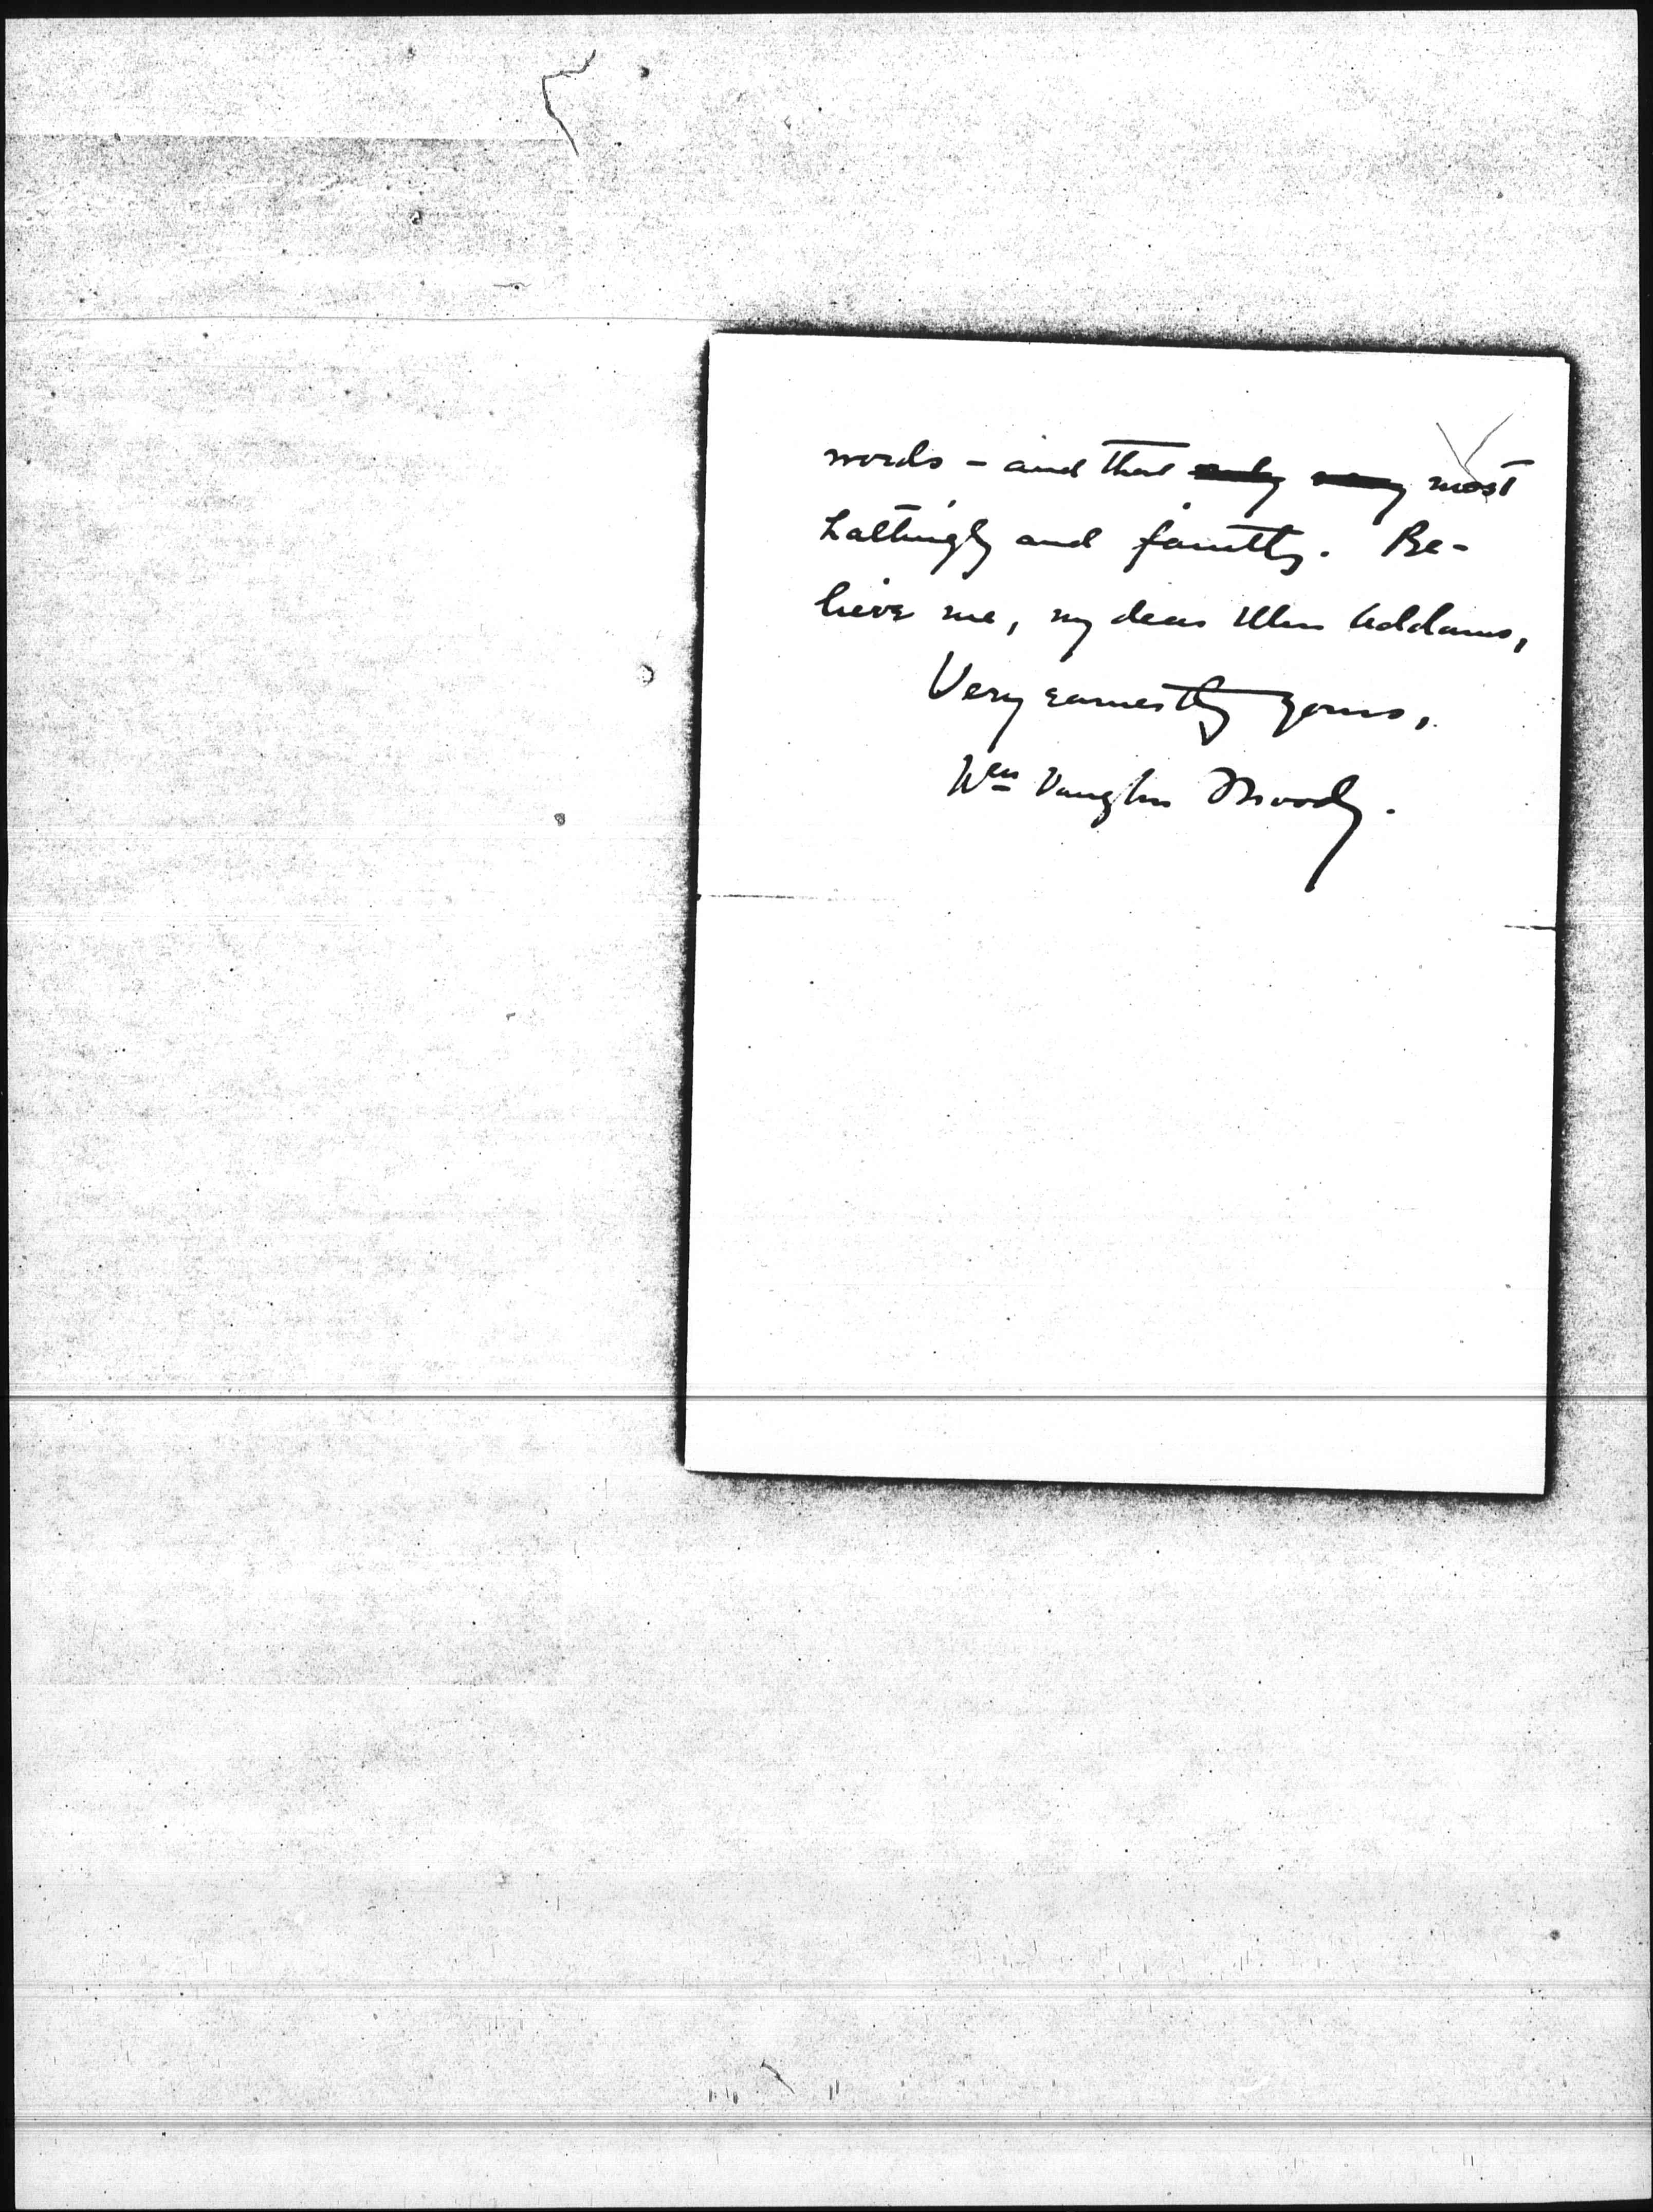 words – and that only very most
haltingly and faintly. Be-
lieve me, my dear Miss Addams,
Very earnestly yours,
Wm Vaughn Moody.